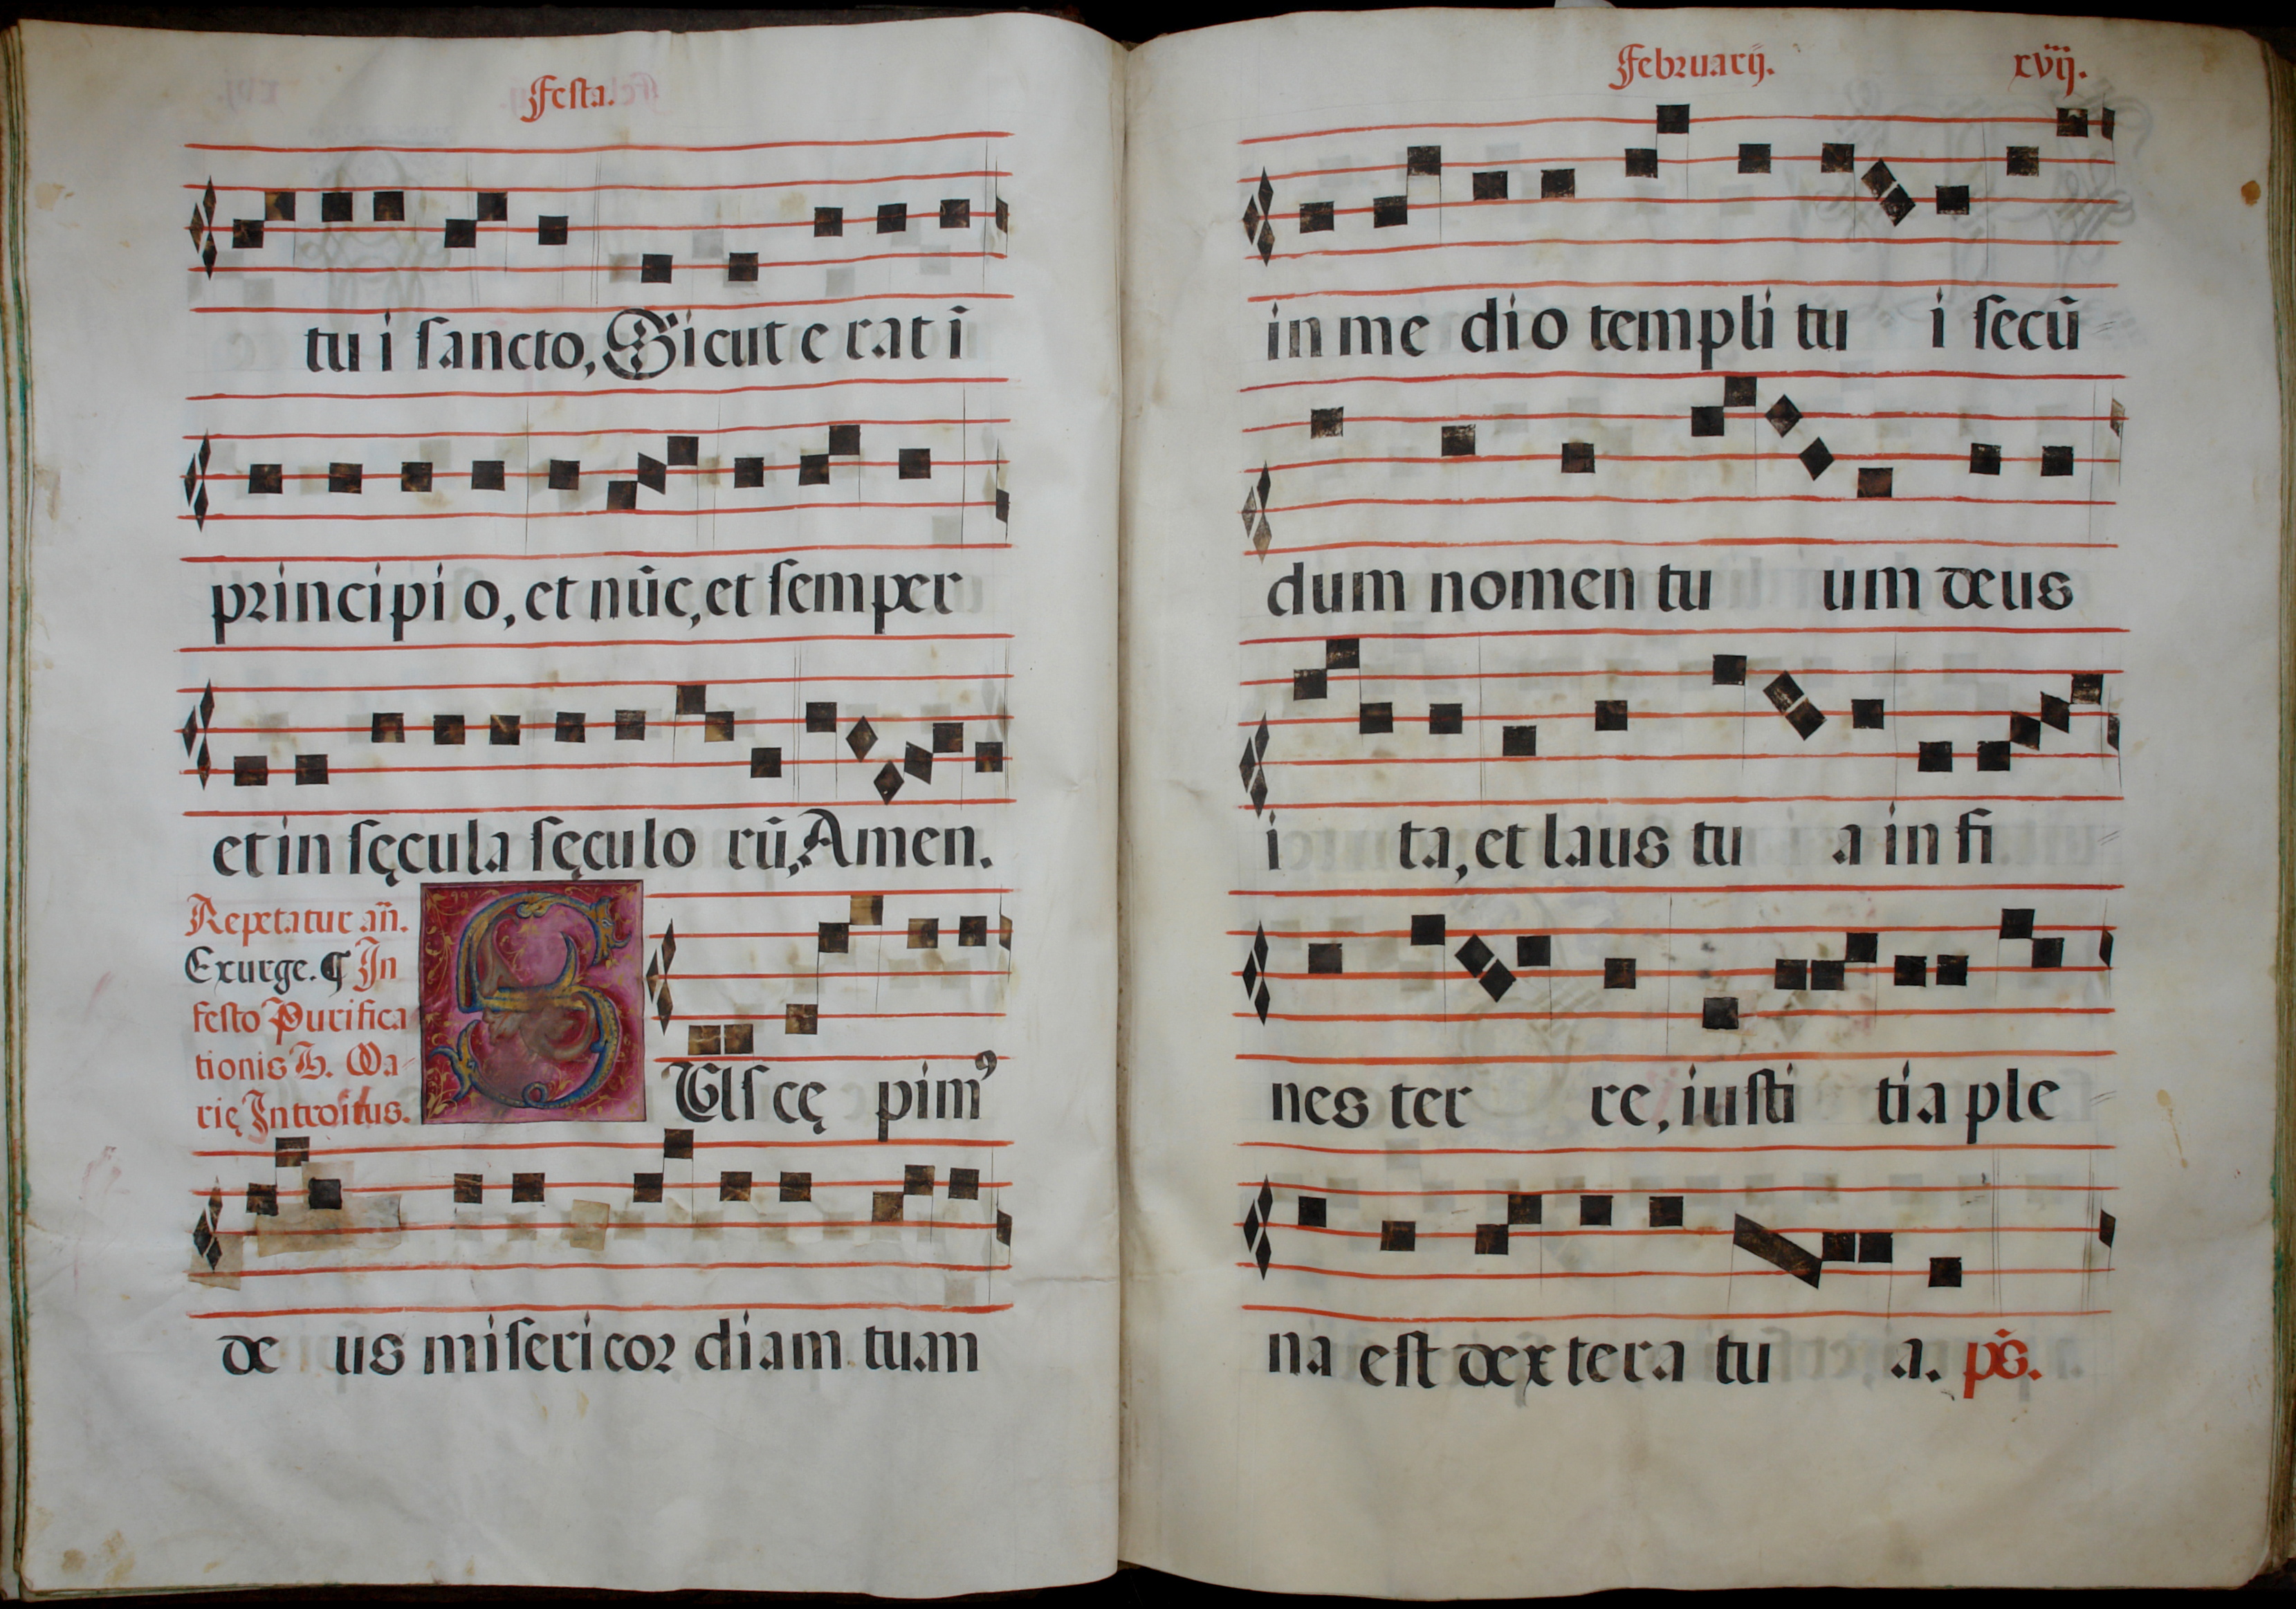 Festa.
tu i sancto, Sicut e rat ī
principi o, et nūc, et semper
et in sęcula sęculo rū, Amen.
Repetatur añ.
Exurge. ¶ In
festo Purifica
tionis B. Ma-
rię Introitus.
SUs cę pimꝰ
de us miseri cor diam tuam
Februarij. xvij.
in me dio templi tu i secū-
dum nomen tu um deus
i ta, et laus tu a in fi-
nes ter re, iusti tia ple-
na est dextera tu a. ps̄.